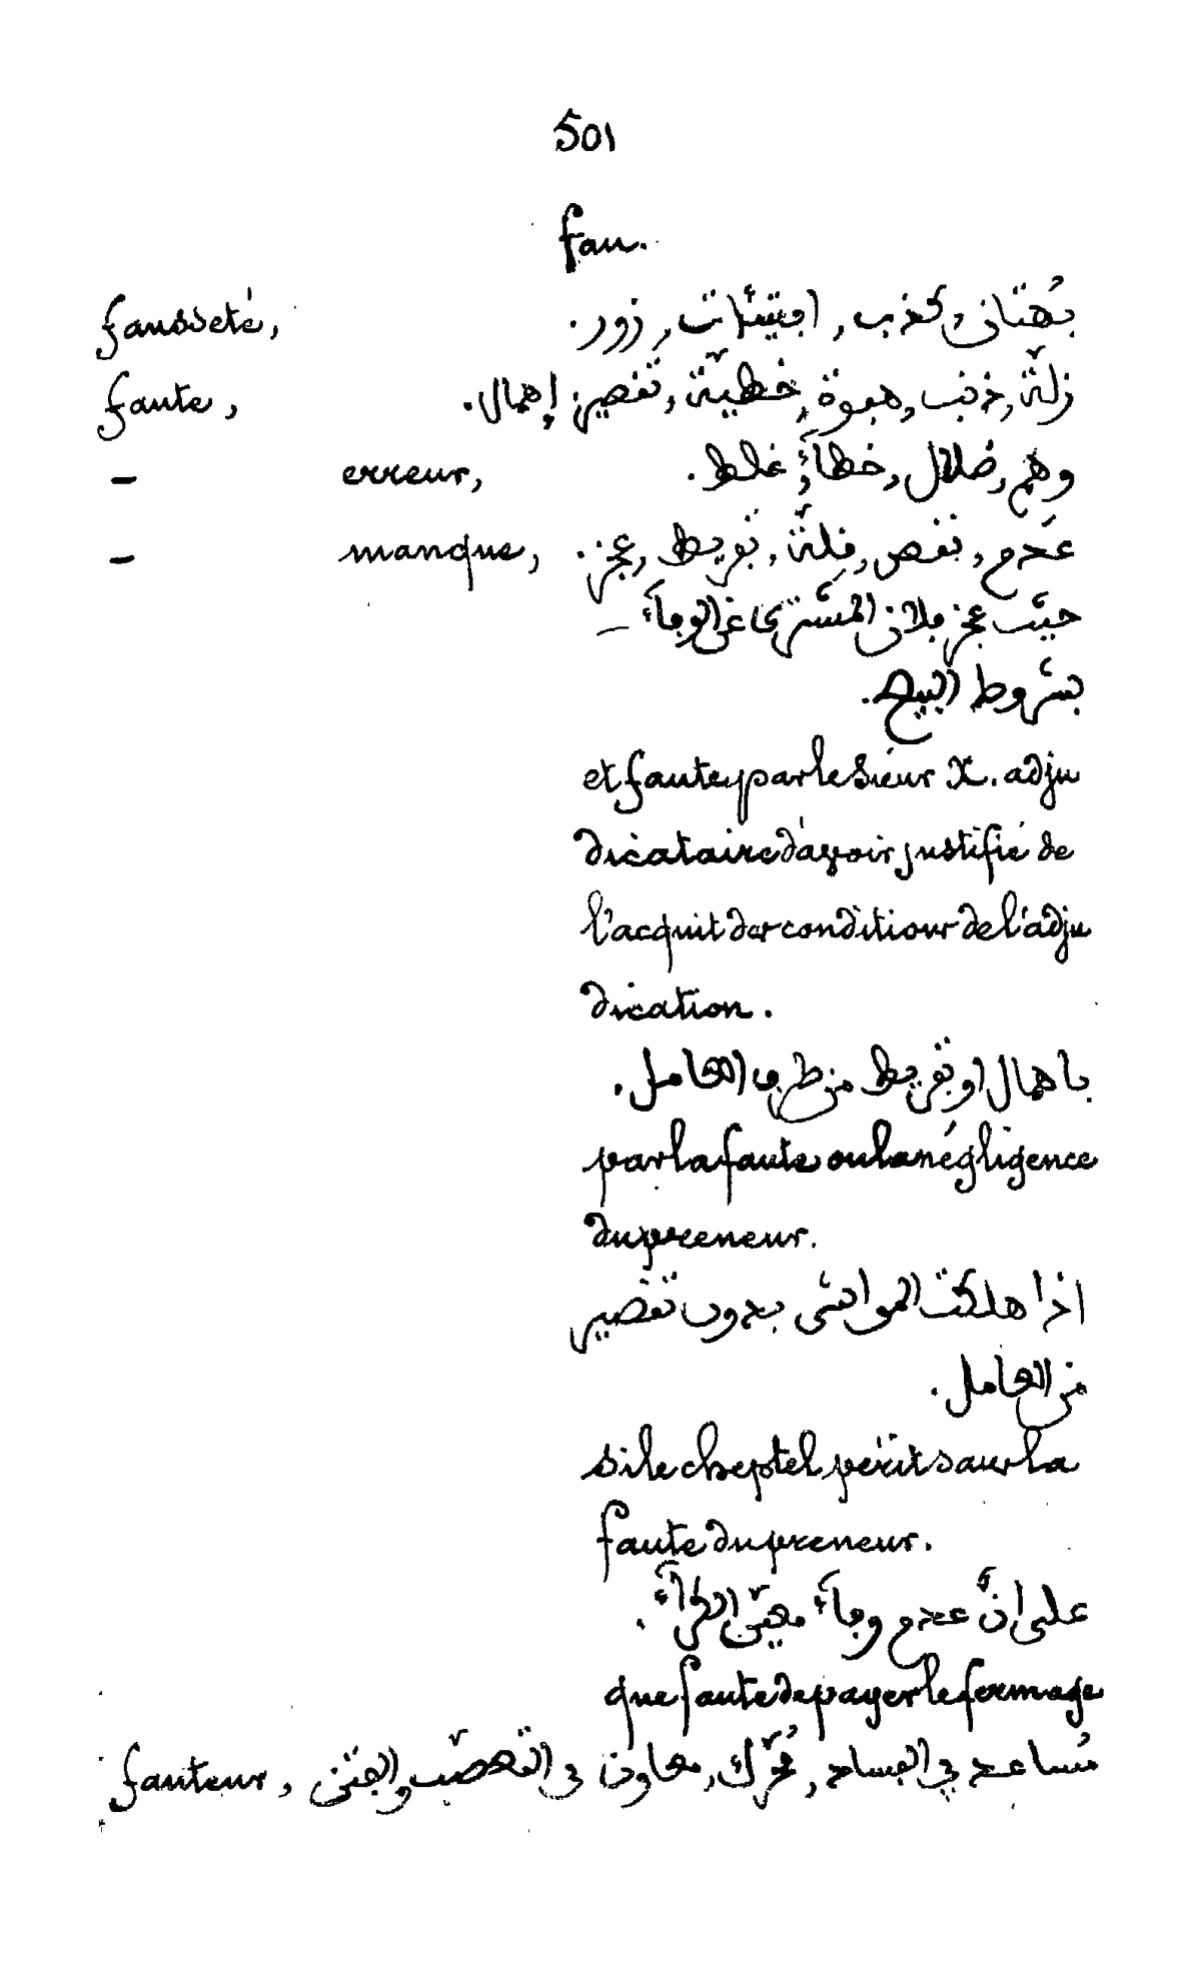 501
fau.
fausseté, بُهتان, كذب, افتئات, زور.
faute, زلّة, ذنب, هفوة, خطيّة, تقصير, إهمال.
– erreur, وهم, ضلال, خطأ, غلط.
– manque, عَدم, نقص, قِلّة, تفريط, عجز.
حيث عجز فلان المشتري عن الوفاء
بشروط البيع.
et faute, par le Sieur X. adju
dicataire d'avoir justifié de
l'acquit des conditions de l'adju
dication.
باهمال او تفريط من طرف العامل.
par la faute ou la négligence
du preneur.
اذا هلكت المواشى بدون تقصير
من العامل.
si le cheptel périt sans la
faute du preneur.
على انّ عدم وفاء معيّن الكراء.
que faute de payer le fermage
fauteur, مُساعد في الفساد, مُحرّك, معاون في التعصّب والفتن